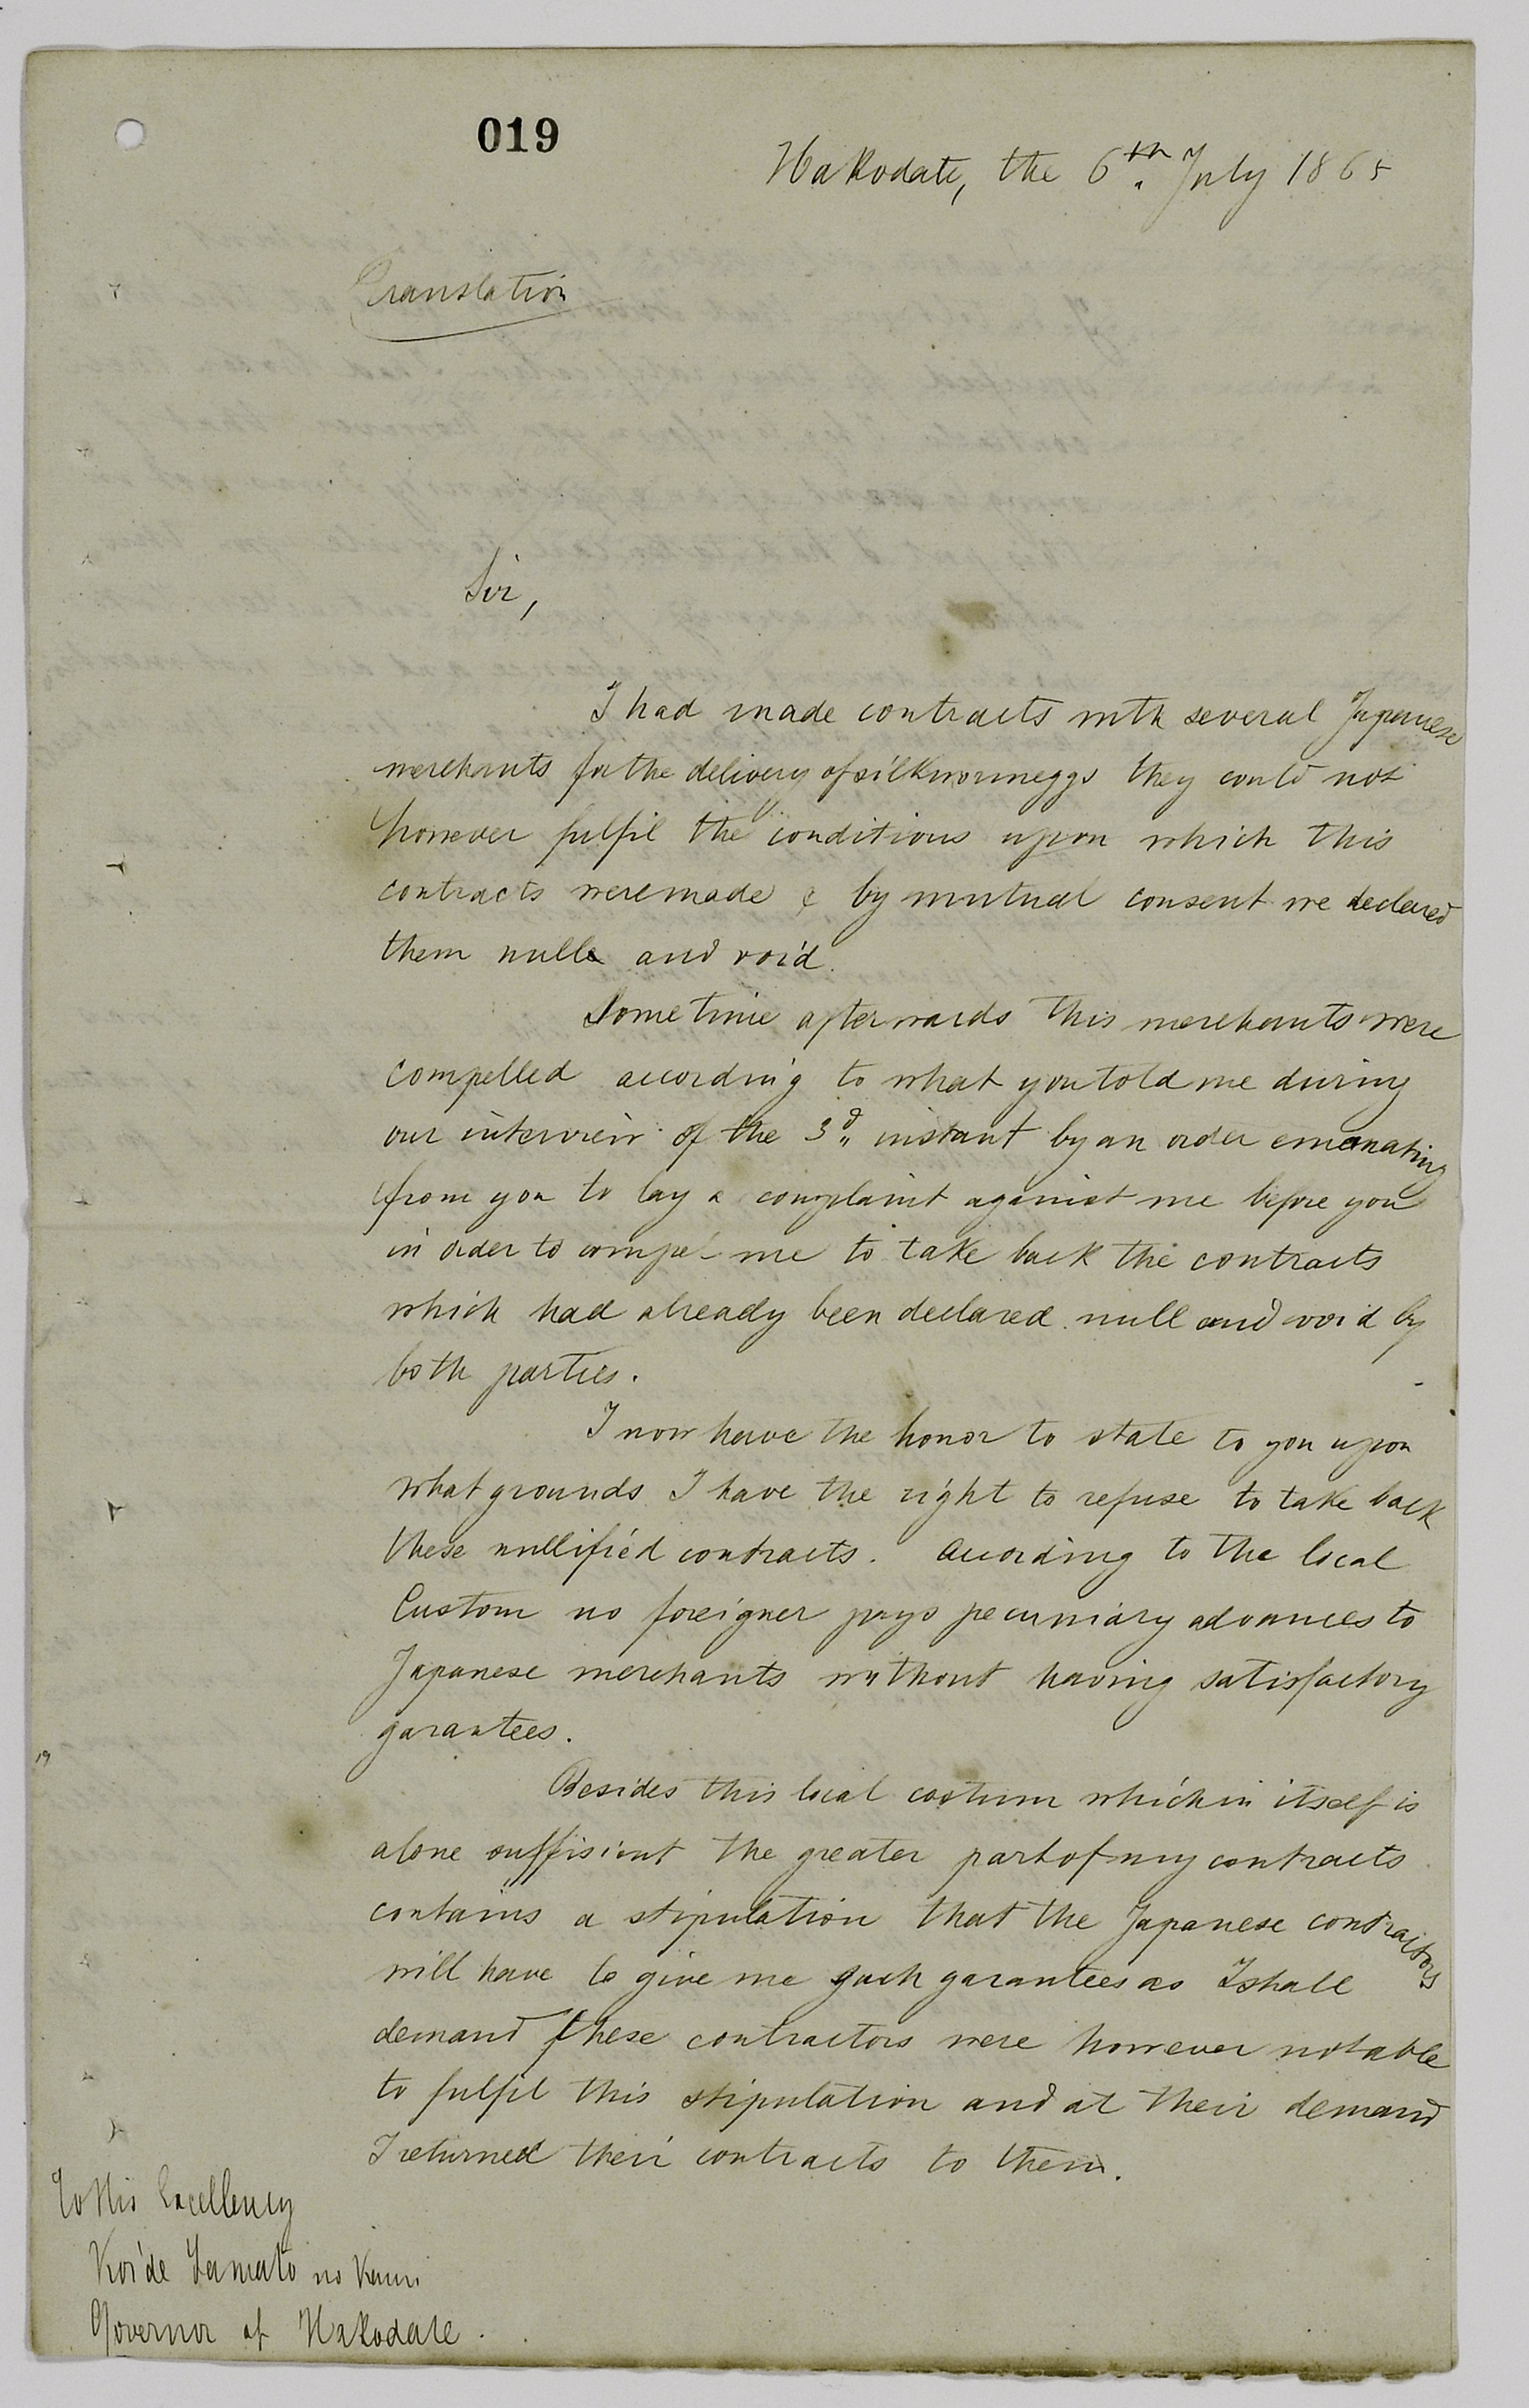 019
Hakodate, the 6th July 1865
Translation
Sir,
I had made contracts with several Japanese
merchants for the delivery of silkwormeggs they could not
however fulfil the conditions upon which this
contracts were made & by mutual consent we declared
them null and void.
Some time afterwards this merchants were
compelled according to what you told me during
our interview of the 3d instant by an order emanating
from you to lay a complaint against me before you
in order to compel me to take back the contracts
which had already been declared null and void by
both parties.
I now have the honor to state to you upon
what grounds I have the right to refuse to take back
these nullified contracts. According to the local
Custom no foreigner pays pecuniary advances to
Japanese merchants without having satisfactory
garantees.
Besides this local costum which in itself is
alone suffisient the greater part of my contracts
contains a stipulation that the Japanese contractors
will have to give me such garantees as I shall
demand these contractors were however not able
to fulfil this stipulation and at their demand
I returned their contracts to them.
19
To His Excellency
Koide Yamato no Kami
Governor of Hakodate.